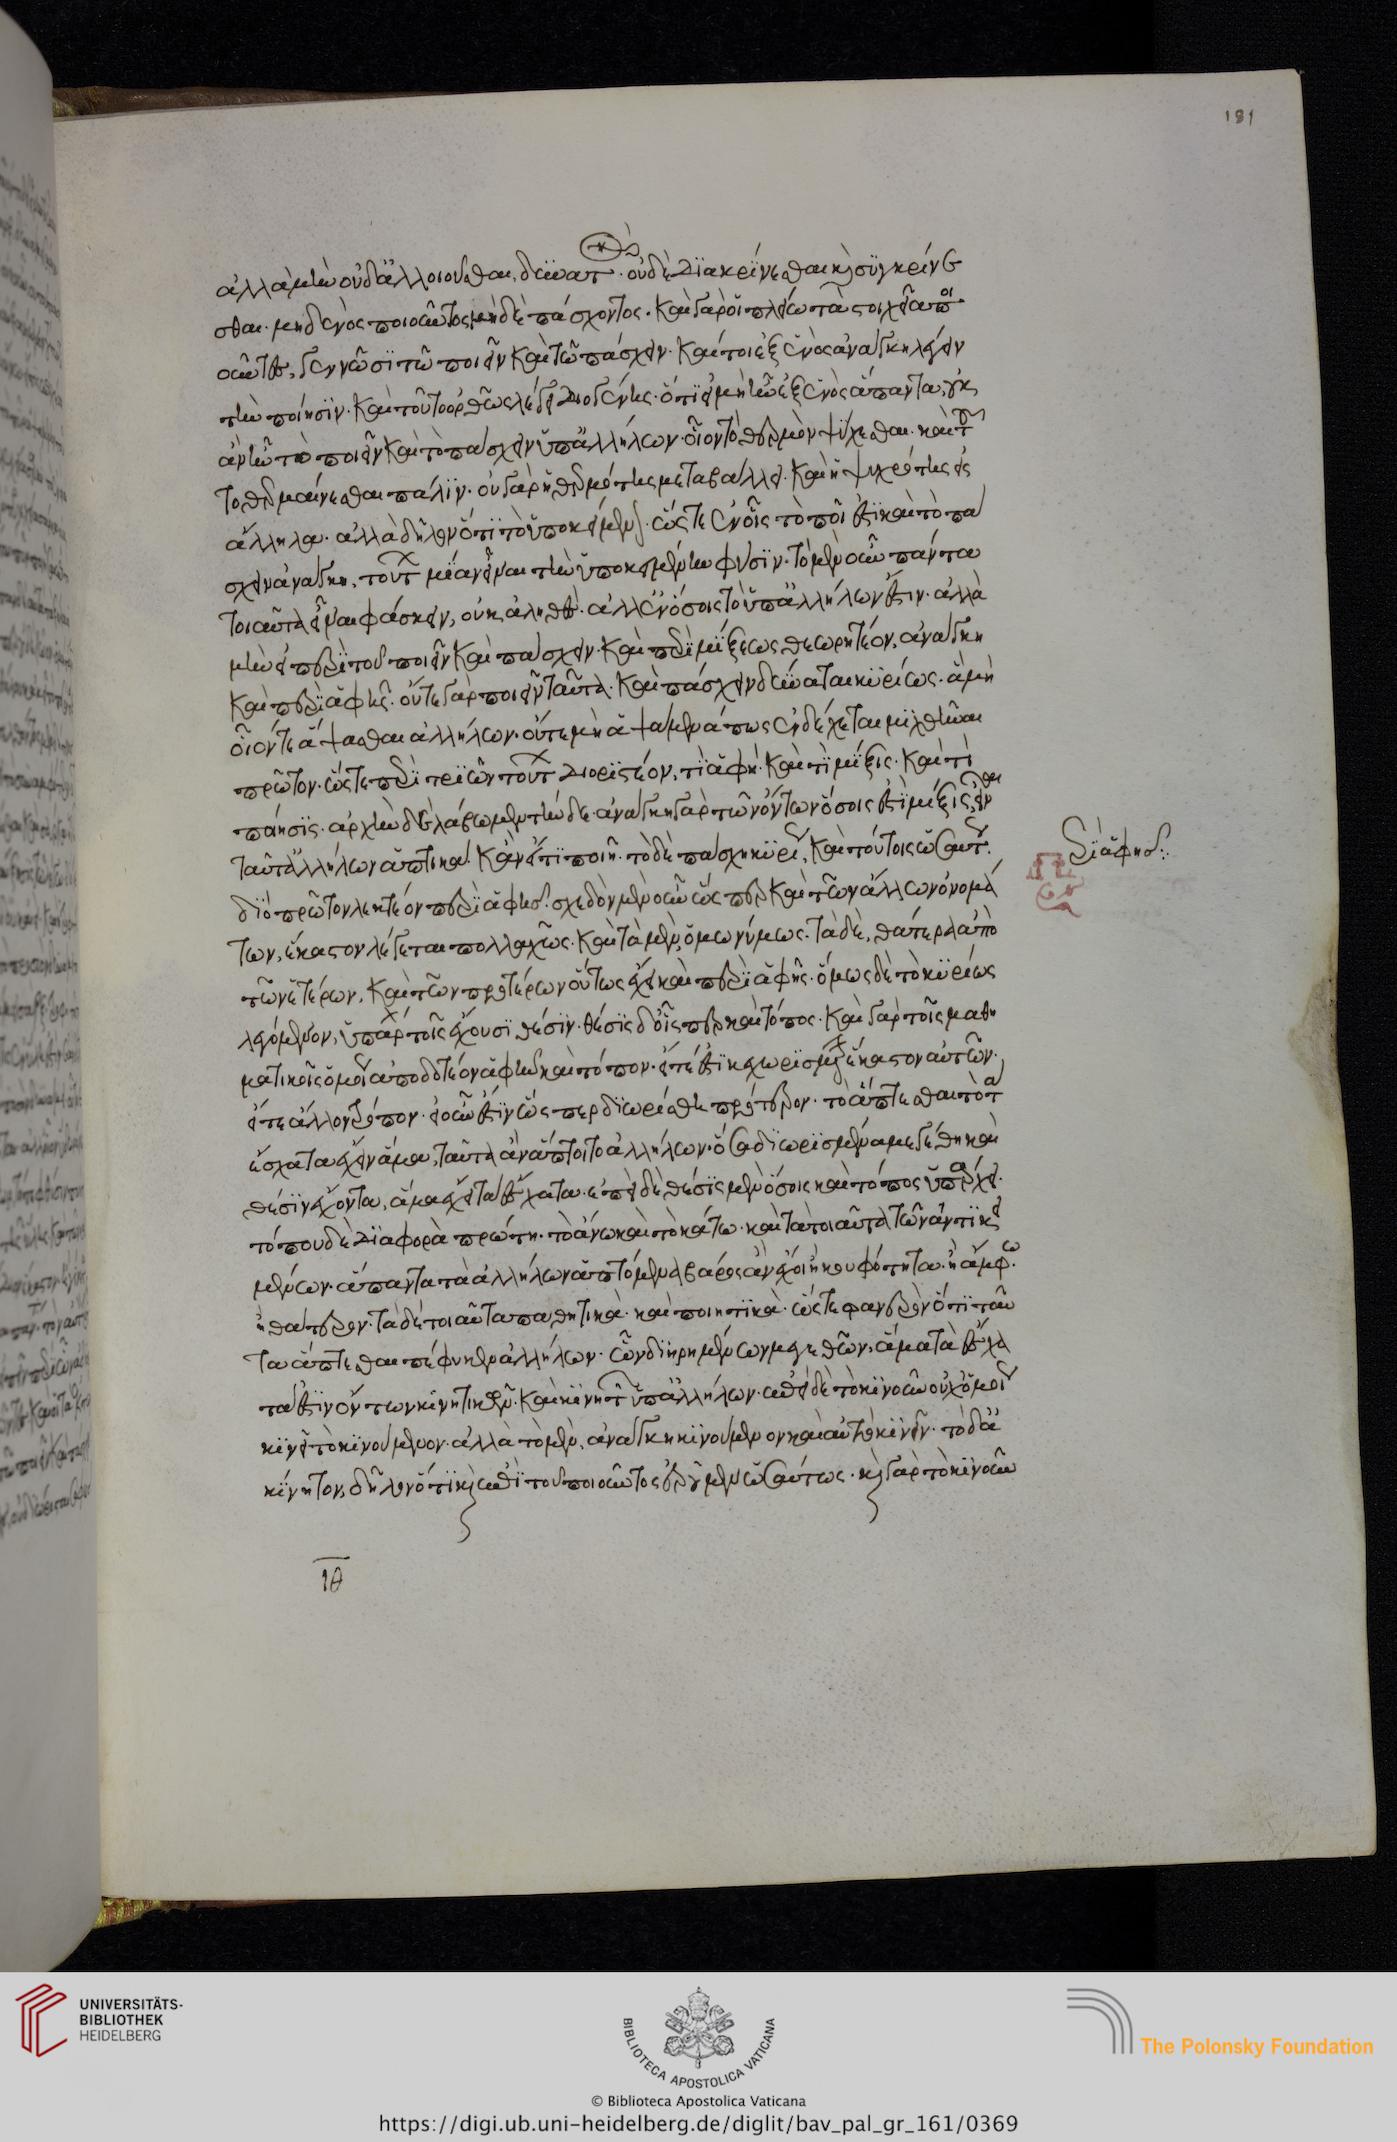 ἀλλὰ μὴν οὐδ' ἀλλοιοῦσθαι δυνατ. οὐδὲ διακρίνεσθαι κ συγκρίνε
σθαι. μηδενὸς ποιοῦντος μηδὲ πάσχοντος. καὶ γὰρ οἱ πλείω τὰ στοιχεῖα ποι
οῦντες, γεννῶσι τῶ ποιεῖν καὶ τῶ πάσχειν. καί τοι ἐξ ἑνὸς ἀνάγκη λέγειν
τὴν ποίησιν. καὶ τοῦτο ὀρθῶς λέγει Διογένης. ὅτι εἰ μὴ ἦν ἐξ ἑνὸς ἅπαντα, οὐκ
ἂν ἦν τὸ ποιεῖν καὶ τὸ πάσχειν ὑπ' ἀλλήλων. οἷον τὸ θερμὸν ψύχεσθαι. καὶ τοῦ
το, θερμαίνεσθαι πάλιν. οὐ γὰρ ἡ θερμότης μεταβάλλει. καὶ ἡ ψυχρότης εἰς
ἄλληλα. ἀλλὰ δῆλον ὅτι τὸ ὑποκείμενον. ὥστε ἐν οἷς τὸ ποιεῖν ἐστὶ καὶ τὸ πά
σχειν ἀνάγκη, τούτων μίαν εἶναι τὴν ὑποκειμένην φύσιν. τὸ μὲν οὖν πάντα
τοιαῦτα εἶναι φάσκειν, οὐκ ἀληθές. ἀλλ' ἐν ὅσοις τὸ ὑπ' ἀλλήλων ἐστίν. ἀλλὰ
μὴν εἰ περὶ τοῦ ποιεῖν καὶ πάσχειν. καὶ περὶ μίξεως θεωρητέον, ἀνάγκη
καὶ περὶ ἁφῆς. οὔτε γὰρ ποιεῖν ταῦτα. καὶ πάσχειν δύναται κυρίως. ἃ μὴ
οἷόν τε ἅψασθαι ἀλλήλων. οὔτε μὴ ἁψάμενά πως ἐνδέχεται μιχθῆναι
πρῶτον. ὥστε περὶ τριῶν τούτων διοριστέον, τί ἁφή. καὶ τί μίξις. καὶ τί
ποίησις. ἀρχὴν δὲ λάβωμεν τήνδε. ἀνάγκη γὰρ τῶν ὄντων ὅσοις ἐστὶ μίξις, εἶναι
ταῦτ' ἀλλήλων ἁπτικά. κἂν εἴ τι ποιεῖ. τὸ δὲ πάσχει κυρίως, καὶ τούτοις ὡσαύτως.
διὸ πρῶτον λεκτέον περὶ ἁφῆς. σχεδὸν μὲν οὖν ὥσπερ καὶ τῶν ἄλλων ὀνομά
των, ἕκαστον λέγεται πολλαχῶς. καὶ τὰ μὲν, ὁμωνύμως. τὰ δὲ, θάτερα ἀπὸ
τῶν ἑτέρων, καὶ τῶν προτέρων οὕτως ἔχει καὶ περὶ ἁφῆς. ὅμως δὲ τὸ κυρίως
λεγόμενον, ὑπάρχει τοῖς ἔχουσι θέσιν. θέσις δ' οἷσπερ καὶ τόπος. καὶ γὰρ τοῖς μαθη
ματικοῖς ὁμοίως ἀποδοτέον ἁφὴν καὶ τόπον. εἴτ' ἐστὶ κεχωρισμένον ἕκαστον αὐτῶν.
εἴτε ἄλλον τρόπον. εἰ οὖν ἐστὶν ὥσπερ διωρίσθη πρότερον. τὸ ἅπτεσθαι τὸ τὰ
ἔσχατα ἔχειν ἅμα, ταῦτα ἂν ἅπτοιτο ἀλλήλων. ὅσα διωρισμένα μεγέθη καὶ
θέσιν ἔχοντα, ἅμα ἔχει τὰ ἔσχατα. ἐπεὶ δὲ θέσις μὲν ὅσοις καὶ τόπος ὑπάρχει.
τόπου δὲ διαφορὰ πρώτη. τὸ ἄνω καὶ τὸ κάτω. καὶ τὰ τοιαῦτα τῶν ἀντικει
μένων. ἅπαντα τὰ ἀλλήλων ἁπτόμενα βάρος ἂν ἔχοι ἢ κουφότητα. ἢ ἄμφω.
ἢ θάτερον. τὰ δὲ τοιαῦτα παθητικὰ. καὶ ποιητικά. ὥστε φανερὸν ὅτι ταῦ
τα ἅπτεσθαι πέφυκεν ἀλλήλων. ὧν διῃρημένων μεγεθῶν, ἅμα τὰ ἔσχα
τά ἐστιν ὄντων κινητικῶν. καὶ κινητῶν ὑπ' ἀλλήλων. ἐπεὶ δὲ τὸ κινοῦν οὐχ ὁμοίως
κινεῖ τὸ κινούμενον. ἀλλὰ τὸ μὲν, ἀνάγκη κινούμενον καὶ αὐτὸ κινεῖν. τὸ δ' ἀ
κίνητον, δῆλον ὅτι κ ἐπὶ τοῦ ποιοῦντος ἐροῦμεν ὡσαύτως. κ γὰρ τὸ κινοῦν
περὶ ἁφῆς:
ιθ
181
UNIVERSITÄTS-
BIBLIOTHEK
HEIDELBERG
BIBLIOTECA APOSTOLICA VATICANA
The Polonsky Foundation
© Biblioteca Apostolica Vaticana
https://digi.ub.uni-heidelberg.de/diglit/bav_pal_gr_161/0369